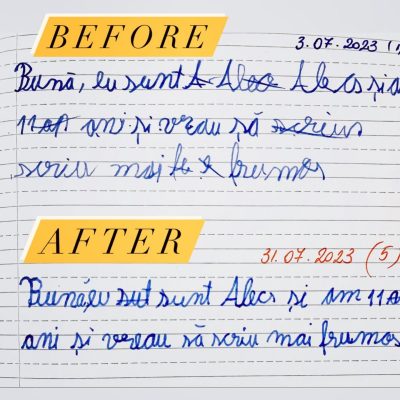 BEFORE
3.07.2023 (1
Bună, eu sunt A Aleo Alecs și a
11 an ani și vreau să scrius
scriu mai fr frumos
AFTER
31.07.2023 (5)
Bună,eu sut sunt Alecs și am 11 a
ani și vreau să scriu mai frumos